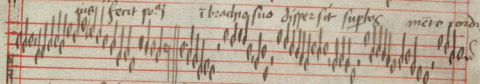 fecit pot) ī brachio suo dispersit supbos mēte cordis